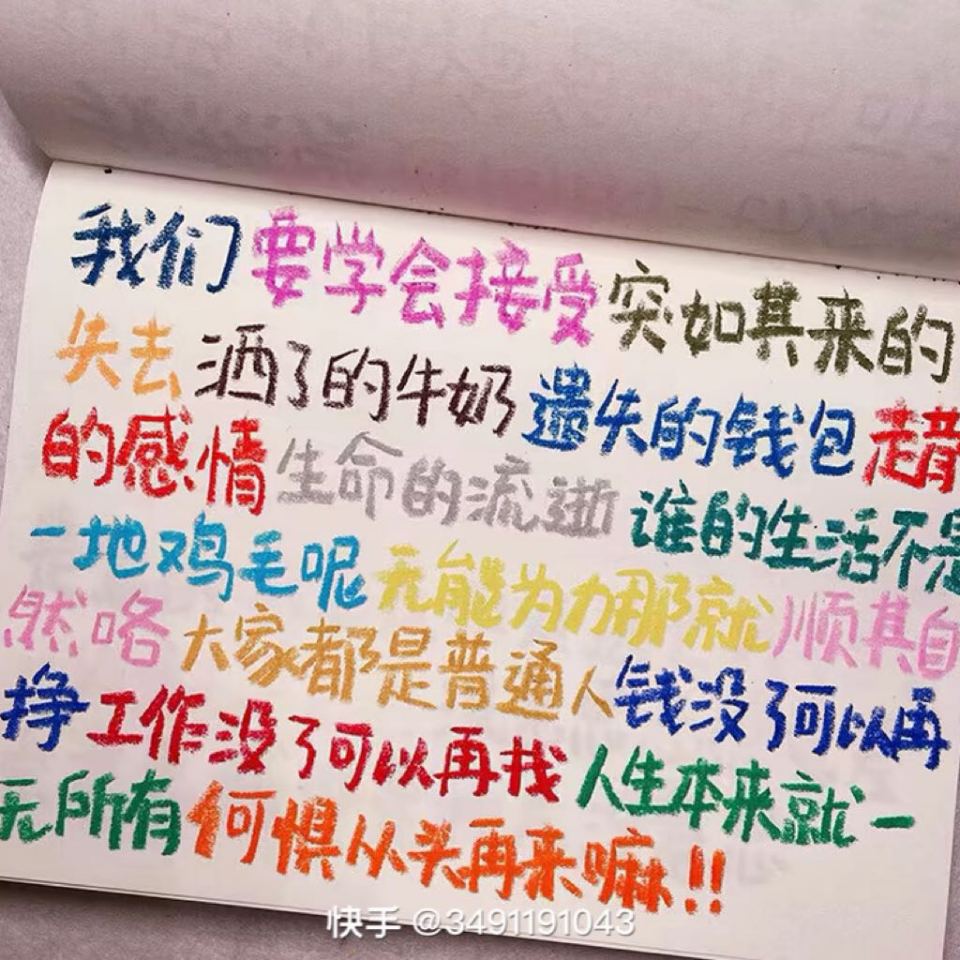 我们要学会接受突如其来的
失去洒了的牛奶遗失的钱包
的感情生命的流逝谁的生活不是
一地鸡毛呢无能为力那就顺其自
然咯大家都是普通人钱没了可以再
挣工作没了可以再找人生本来就一
无所有何惧从头再来嘛!!
快手 @3491191043